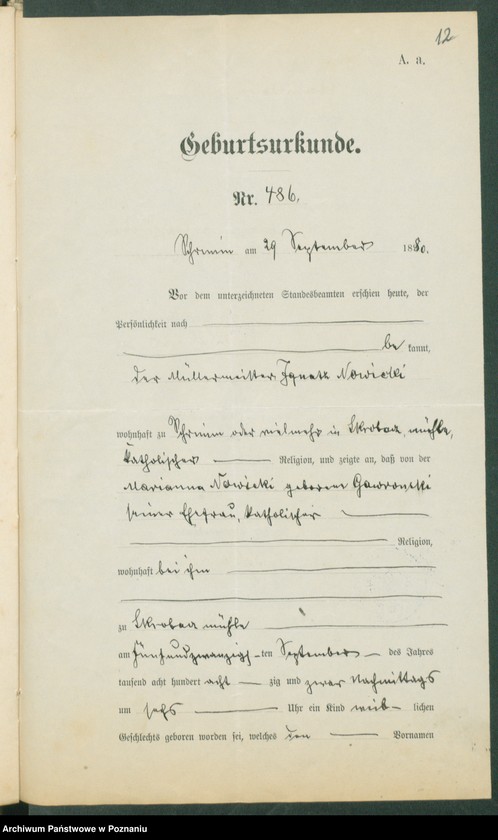 12
A. a.
Geburtsurkunde.
Nr. 486.
Schrimm am 29 September 1880.
Vor dem unterzeichneten Standesbeamten erschien heute, der
Persönlichkeit nach
be kannt,
der Müllermeister Ignatz Nowicki
wohnhaft zu Schrimm oder vielmehr in mühle,
katholischer Religion, und zeigte an, daß von der
Marianna Nowicki geborene Gawronski
seiner Ehefrau, katholischer
Religion,
wohnhaft bei ihm
zu mühle
am fünfundzwanzigs-ten September des Jahres
tausend acht hundert acht zig und zwar Nachmittags
um sechs Uhr ein Kind weib- lichen
Geschlechts geboren worden sei, welches Vornamen
Archiwum Państwowe w Poznaniu